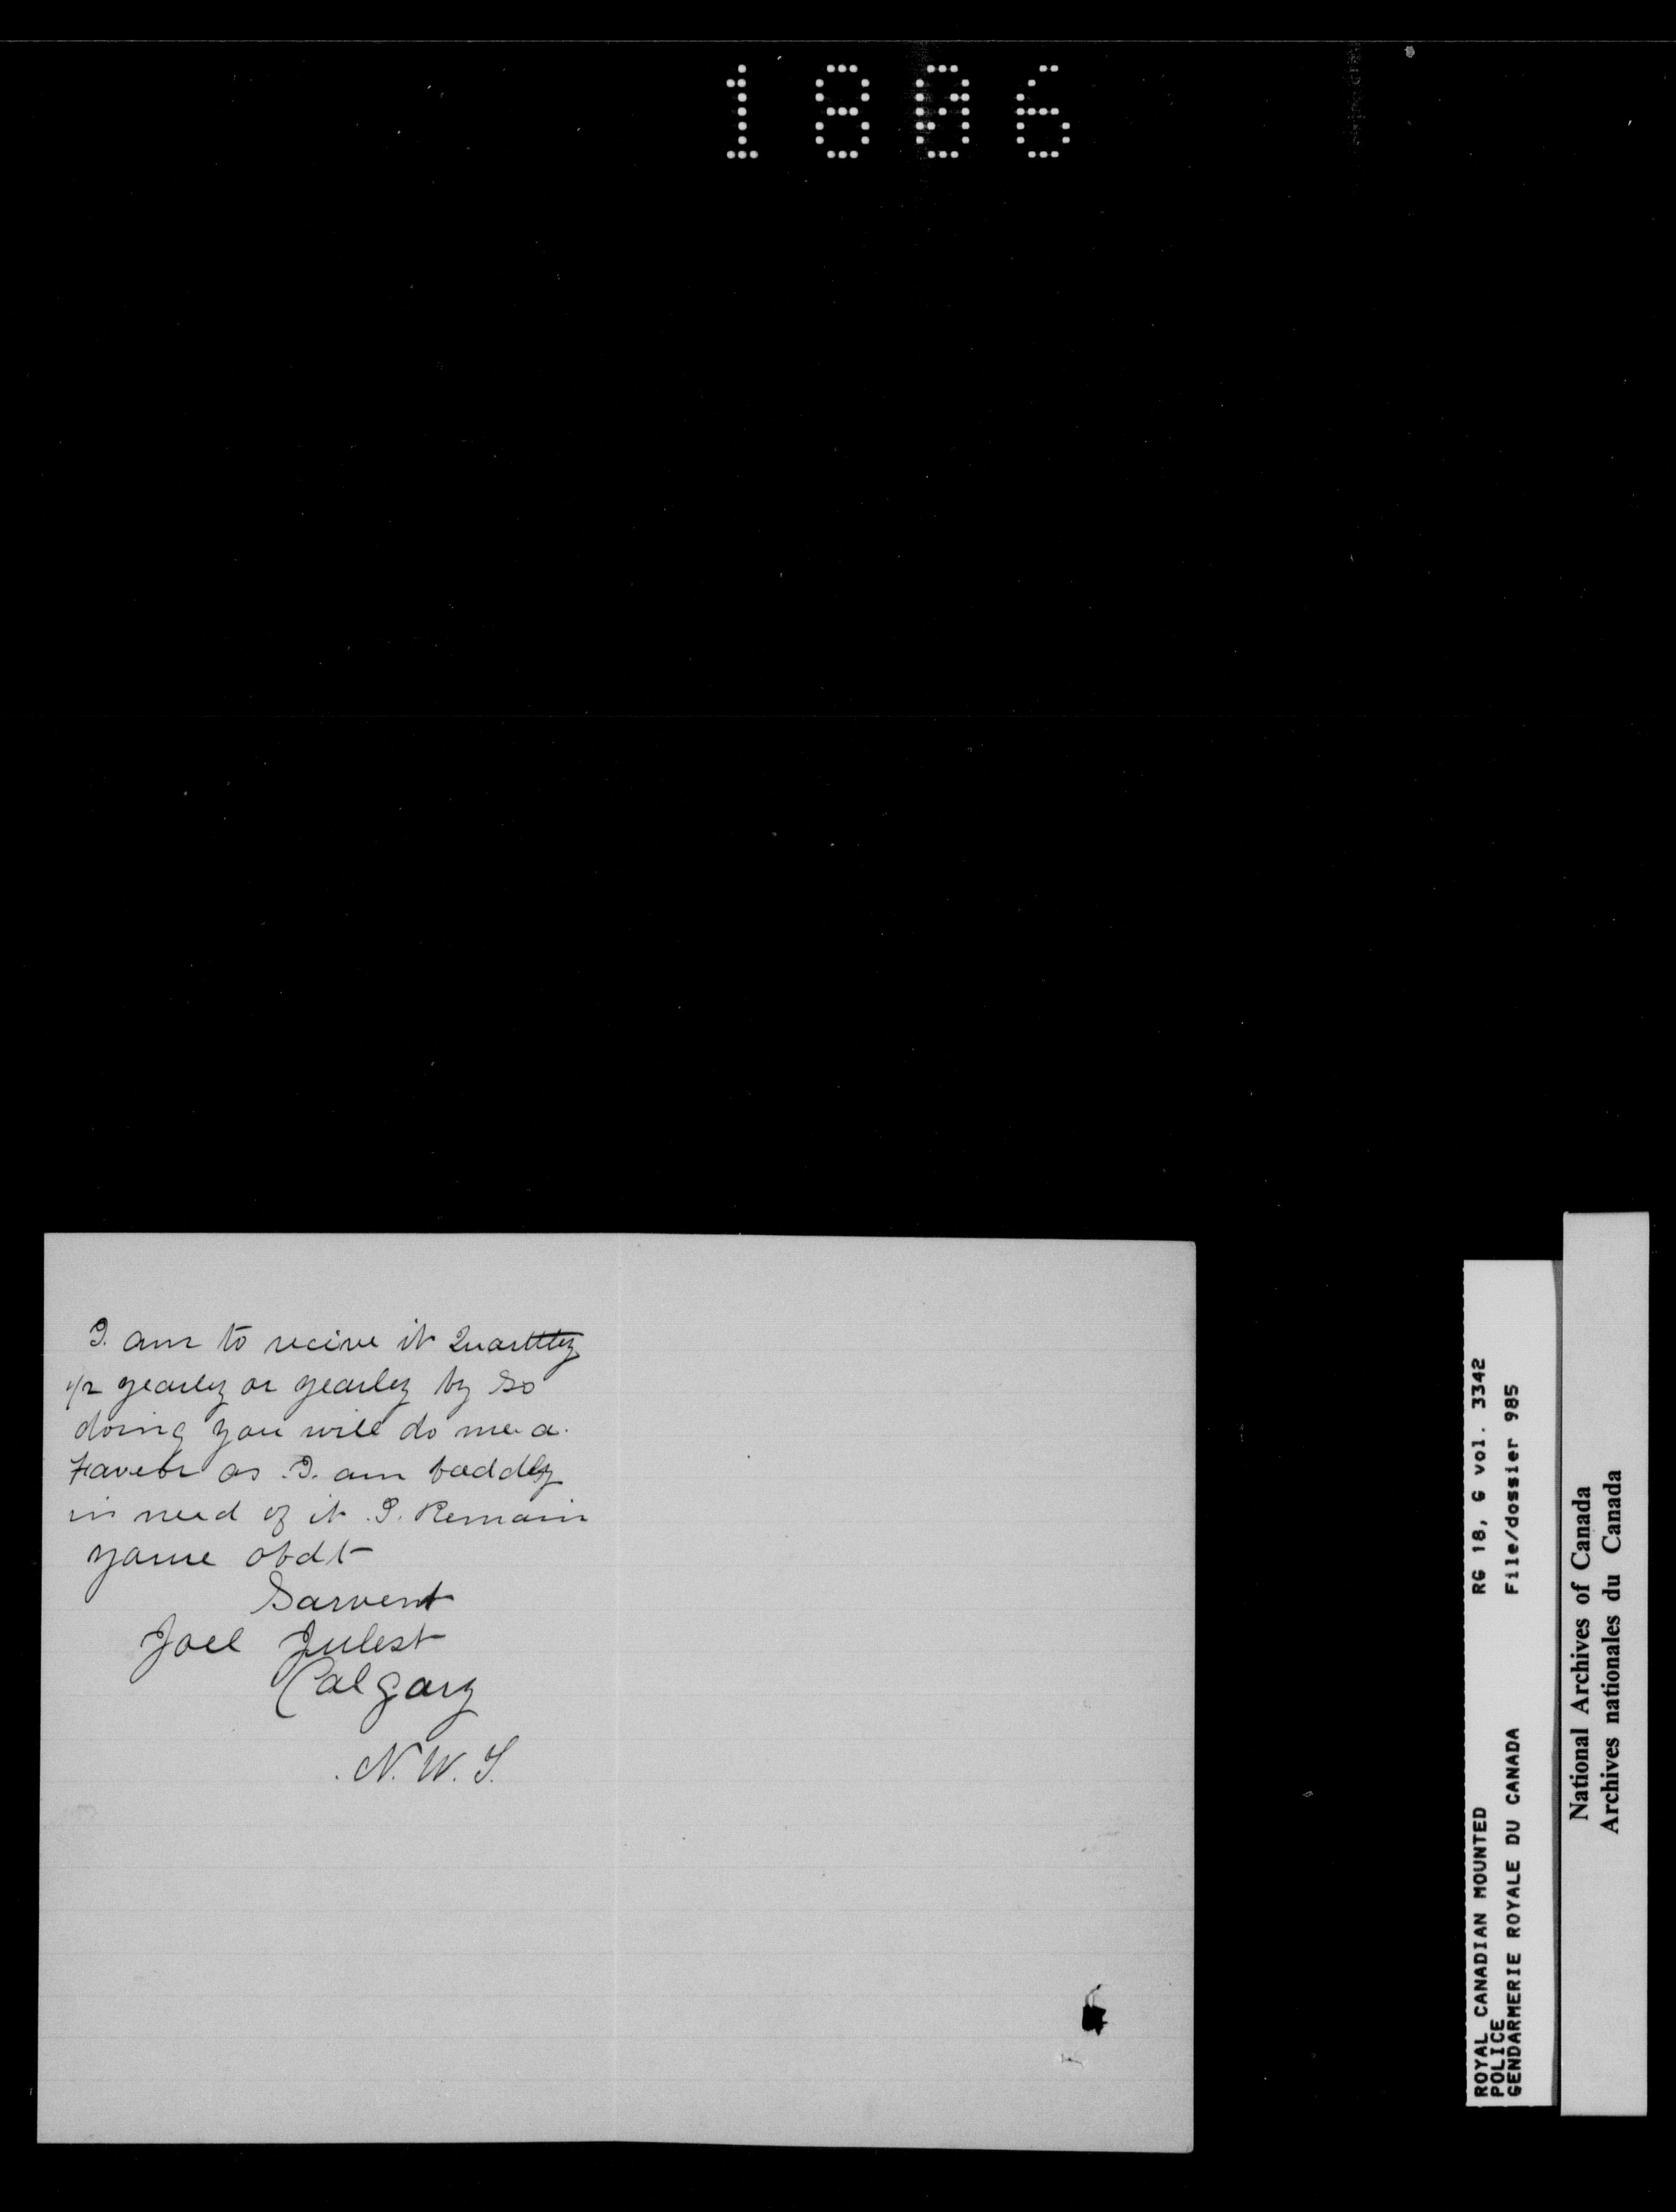 1806
I. am to recive it Quarttly
1/2 yearly or yearly by so
doing you will do me a.
Faveor as .I. am baddly
in need of it .I. Remain
youre obdt
Sarvent
Joel
Calgary
.N.W.T.
ROYAL CANADIAN MOUNTED RG 18, G vol. 3342
POLICE
GENDARMERIE ROYALE DU CANADA File/dossier 985
National Archives of Canada
Archives nationales du Canada